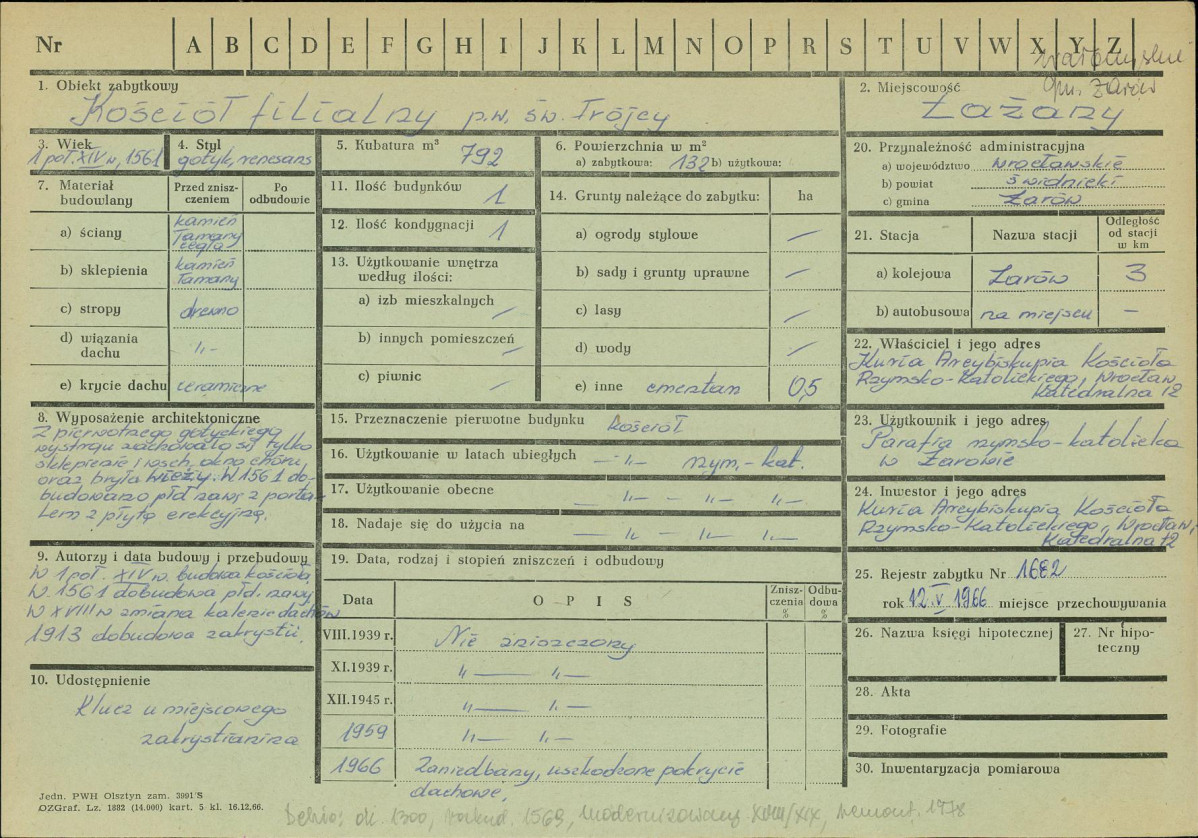 Nr A B C D E F G H I J K L M N O P R S T U V W X Y Z
wałbrzyskie
gm. Żarów
1. Obiekt zabytkowy
Kościół filialny p.w. św. Trójcy
2. Miejscowość
Łażany
3. Wiek
1 poł. XIV w, 1561
4. Styl
gotyk, renesans
5. Kubatura m³ 792
6. Powierzchnia w m²
a) zabytkowa: 132 b) użytkowa:
7. Materiał budowlany
Przed zniszczeniem
Po odbudowie
a) ściany kamień łamany cegła
b) sklepienia kamień łamany
c) stropy drewno
d) wiązania dachu -„-
e) krycie dachu ceramiczne
8. Wyposażenie architektoniczne
Z pierwotnego gotyckiego
wystroju zachowało się tylko
sklepienie i wsch. okno chóru
oraz bryła wieży. W 1561 do-
budowano płd. nawę z porta-
lem z płytą erekcyjną.
9. Autorzy i data budowy i przebudowy
W 1 poł. XIV w. budowa kościoła
W 1561 dobudowa płd. nawy
W XVIII w zmiana
dachów
1913 dobudowa zakrystii.
10. Udostępnienie
Klucz u miejscowego
zakrystianina
11. Ilość budynków 1
12. Ilość kondygnacji 1
13. Użytkowanie wnętrza
według ilości:
a) izb mieszkalnych —
b) innych pomieszczeń —
c) piwnic —
14. Grunty należące do zabytku: ha
a) ogrody stylowe —
b) sady i grunty uprawne —
c) lasy —
d) wody —
e) inne cmentarz 0,5
15. Przeznaczenie pierwotne budynku kościół
16. Użytkowanie w latach ubiegłych —„— rzym.-kat.
17. Użytkowanie obecne —„— —„— —„—
18. Nadaje się do użycia na —„— —„— —„—
19. Data, rodzaj i stopień zniszczeń i odbudowy
Data OPIS Zniszczenia % Odbudowa %
VIII.1939 r. Nie zniszczony
XI.1939 r. „ —— „ —
XII.1945 r. „ —— „ —
1959 „ — „ —
1966 Zaniedbany, uszkodzone pokrycie
dachowe.
20. Przynależność administracyjna
a) województwo wrocławskie
b) powiat świdnicki
c) gmina Żarów
21. Stacja Nazwa stacji Odległość od stacji w km
a) kolejowa Żarów 3
b) autobusowa na miejscu —
22. Właściciel i jego adres
Kuria Arcybiskupia Kościoła
Rzymsko-Katolickiego, Wrocław,
Katedralna 12
23. Użytkownik i jego adres
Parafia rzymsko-katolicka
w Żarowie
24. Inwestor i jego adres
Kuria Arcybiskupia Kościoła
Rzymsko-Katolickiego, Wrocław,
Katedralna 12
25. Rejestr zabytku Nr 1682
rok 12.V.1966 miejsce przechowywania
26. Nazwa księgi hipotecznej
27. Nr hipoteczny
28. Akta
29. Fotografie
30. Inwentaryzacja pomiarowa
Jedn. PWH Olsztyn zam. 3991/S
OZGraf. Lz. 1882 (14.000) kart. 5 kl. 16.12.66.
Dehio: ok. 1300, przebud. 1569, modernizowany XVIII/XIX, remont. 1978